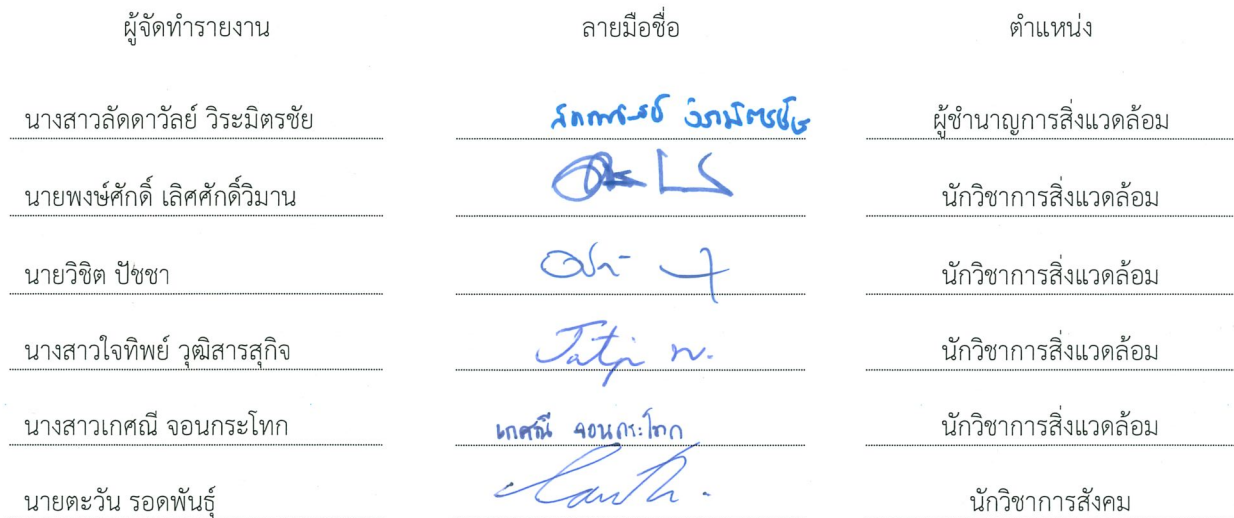 ผู้จัดทำรายงาน ลายมือชื่อ ตำแหน่ง
นางสาวลัดดาวัลย์ วิระมิตรชัย ลัดดาวัลย์ วิระมิตรชัย ผู้ชำนาญการสิ่งแวดล้อม
นายพงษ์ศักดิ์ เลิศศักดิ์วิมาน นักวิชาการสิ่งแวดล้อม
นายวิชิต ปัชชา นักวิชาการสิ่งแวดล้อม
นางสาวใจทิพย์ วุฒิสารสุกิจ นักวิชาการสิ่งแวดล้อม
นางสาวเกศณี จอนกระโทก เกศณี จอนกระโทก นักวิชาการสิ่งแวดล้อม
นายตะวัน รอดพันธุ์ นักวิชาการสังคม